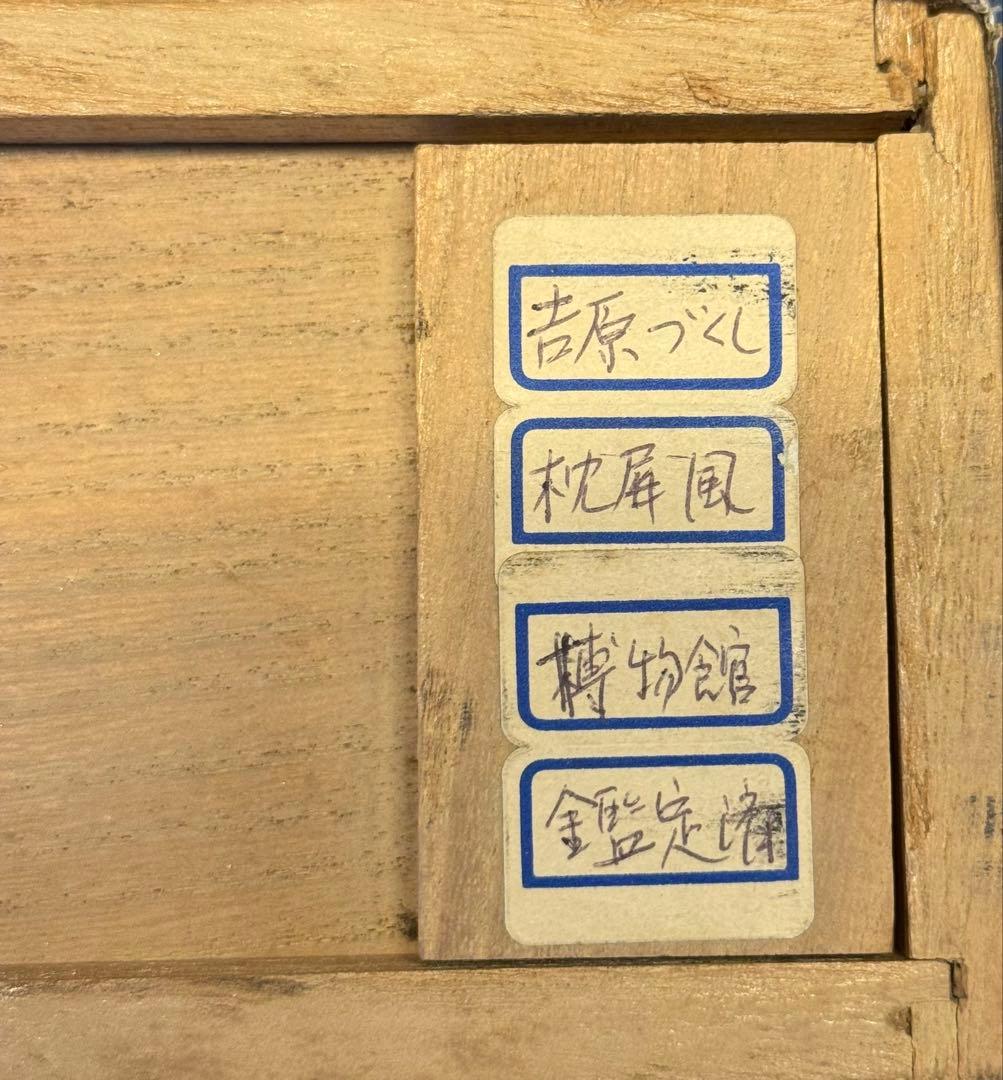 吉原づくし
枕屏風
博物館
鑑定済